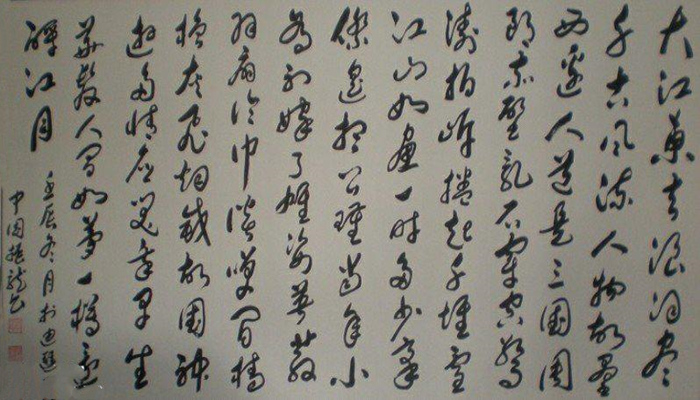 大江东去浪淘尽
千古风流人物故垒
西边人道是三国周
郎赤壁乱石穿空惊
涛拍岸捲起千堆雪
江山如画一时多少豪
傑遥想公瑾当年小
乔初嫁了雄姿英发
羽扇纶巾谈笑间樯
橹灰飞烟灭故国神
遊多情应笑我早生
华发人间如梦一樽还
酹江月
壬辰冬月於
中国龙书